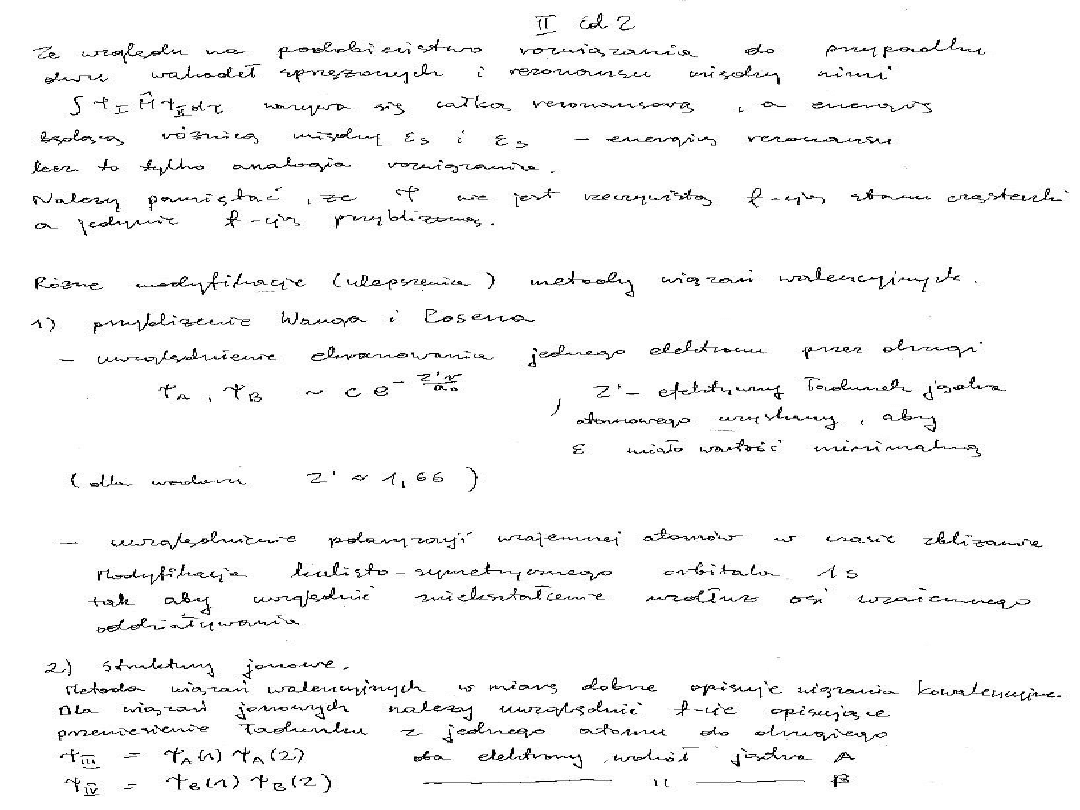 II cd 2
Ze względu na podobieństwo rozwiązania do przypadku
dwu wahadeł sprzężonych i rezonansu między nimi
∫ Ψ_I Ĥ Ψ_II dτ nazywa się całką rezonansową, a energię
będącą różnicą między ε_s i ε_s – energią rezonansu
lecz to tylko analogia rozwiązania.
Należy pamiętać, że Ψ nie jest rzeczywistą f-cją stanu cząsteczki
a jedynie f-cją przybliżoną.
Różne modyfikacje (ulepszenia) metody wiązań walencyjnych.
1) przybliżenie Wanga i Rosena
– uwzględnienie ekranowania jednego elektronu przez drugi
Ψ_A, Ψ_B ~ c e^{-Z'r/a_0} , Z' – efektywny ładunek jądra
atomowego uzyskany, aby
ε miało wartość minimalną
(dla wodoru Z' ≈ 1,66)
– uwzględnienie polaryzacji wzajemnej atomów w czasie zbliżania
Modyfikacja kulisto-symetrycznego orbitala 1s
tak aby uwzględnić zniekształcenie wzdłuż osi wzajemnego
oddziaływania
2) Struktury jonowe.
Metoda wiązań walencyjnych w miarę dobrze opisuje wiązania kowalencyjne.
Dla wiązań jonowych należy uwzględnić f-cje opisujące
przeniesienie ładunku z jednego atomu do drugiego
Ψ_III = Ψ_A(1) Ψ_A(2) oba elektrony wokół jądra A
Ψ_IV = Ψ_B(1) Ψ_B(2) —— 11 —— B